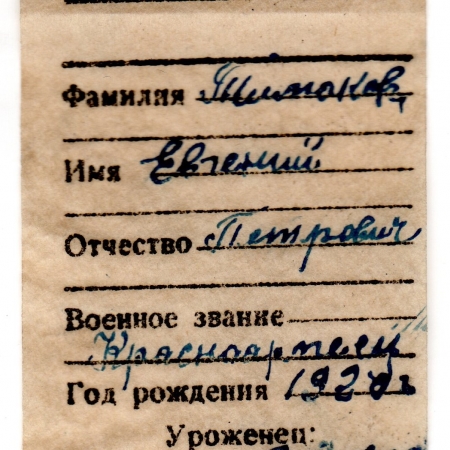 Фамилия Тимаков
Имя Евгений
Отчество Петрович
Военное звание
Красноармеец
Год рождения 1920 г
Уроженец: